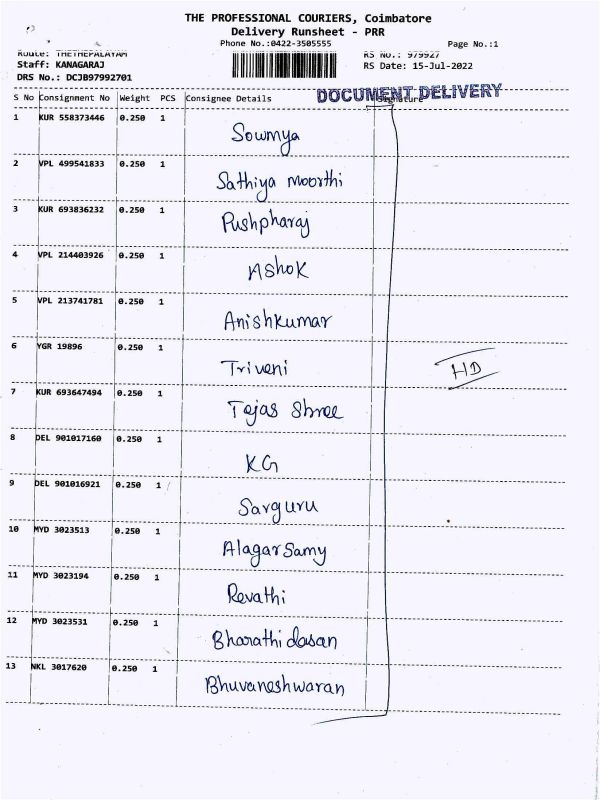 THE PROFESSIONAL COURIERS, Coimbatore
Delivery Runsheet - PRR
Phone No.:0422-3505555
Page No.:1
Route: THETHEPALAYAM
RS No.: 979927
Staff: KANAGARAJ
RS Date: 15-Jul-2022
DRS No.: DCJB97992701
DOCUMENT DELIVERY
S No Consignment No Weight PCS Consignee Details Signature
1 KUR 558373446 0.250 1 Sowmya
2 VPL 499541833 0.250 1 Sathiya Moorthi
3 KUR 693836232 0.250 1 Pushpharaj
4 VPL 214403926 0.250 1 Ashok
5 VPL 213741781 0.250 1 Anishkumar
6 YGR 19896 0.250 1 Triveni
HD
7 KUR 693647494 0.250 1 Tejas Shree
8 DEL 901017160 0.250 1 KG
9 DEL 901016921 0.250 1 Sarguru
10 MYD 3023513 0.250 1 Alagarsamy
11 MYD 3023194 0.250 1 Revathi
12 MYD 3023531 0.250 1 Bharathidasan
13 NKL 3017620 0.250 1 Bhuvaneshwaran